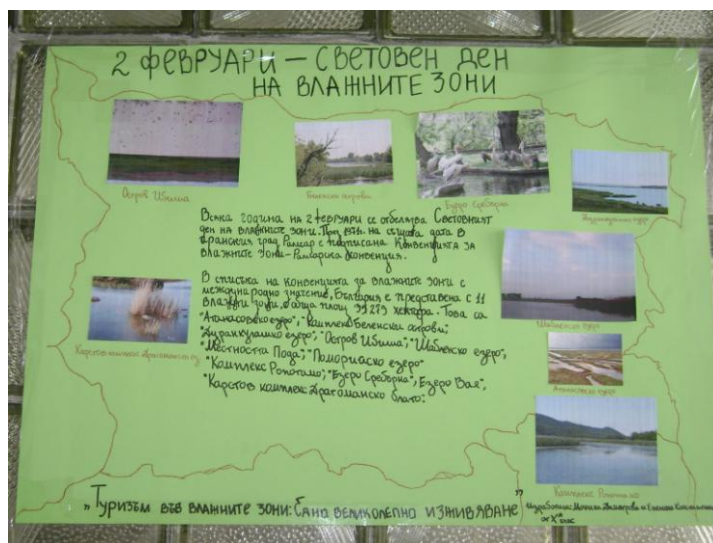 2 ФЕВРУАРИ – СВЕТОВЕН ДЕН
НА ВЛАЖНИТЕ ЗОНИ
Остров Ибиша
Беленски острови
Езеро Сребърна
Дуранкулашко езеро
Всяка година на 2 февруари се отбелязва Световният
ден на влажните зони. През 1971г. на същата дата в
иранския град Рамсар е подписана Конвенцията за
влажните зони – Рамсарска конвенция.
Шабленско езеро
В списъка на конвенцията за влажните зони с
международно значение, България е представена с 11
влажни зони, с обща площ 35 273 хектара. Това са
"Атанасовско езеро", "Комплекс Беленски острови",
"Дуранкулашко езеро", "Остров Ибиша", "Шабленско езеро",
"Местността Пода", "Поморийско езеро"
"Комплекс Ропотамо", "Езеро Сребърна", Езеро Вая",
"Карстов комплекс Драгоманско блато".
Карстов комплекс Драгоманско
Атанасовско езеро
Комплекс Ропотамо
„Туризъм във влажните зони: Едно великолепно изживяване"
Изработили: Димитрова и
от X клас